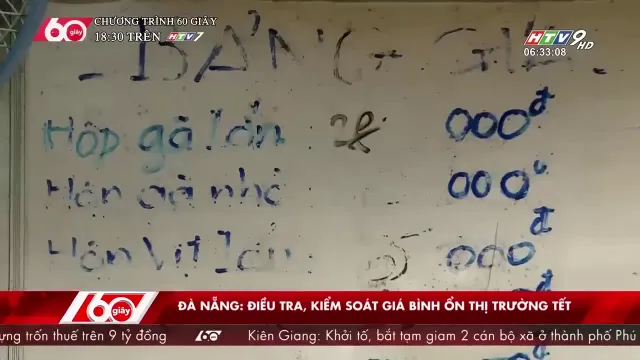 60 giây
CHƯƠNG TRÌNH 60 GIÂY
18:30 TRÊN HTV7
HTV9 HD
06:33:08
- BẢNG GIÁ
Hộp gà lớn 28 000đ
Hộp gà nhỏ 000đ
Hộp Vịt lớn 5 000đ
60 giây
ĐÀ NẴNG: ĐIỀU TRA, KIỂM SOÁT GIÁ BÌNH ỔN THỊ TRƯỜNG TẾT
ựng trốn thuế trên 9 tỷ đồng 60 Kiên Giang: Khởi tố, bắt tạm giam 2 cán bộ xã ở thành phố Phú